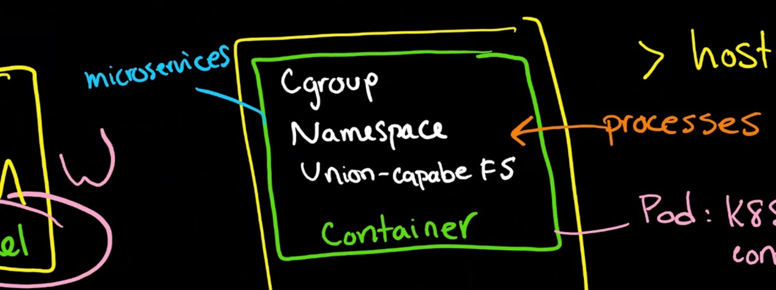 microservices
Cgroup
Namespace
Union-capabe FS
Container
> host
processes
Pod: K8S
con
W
el